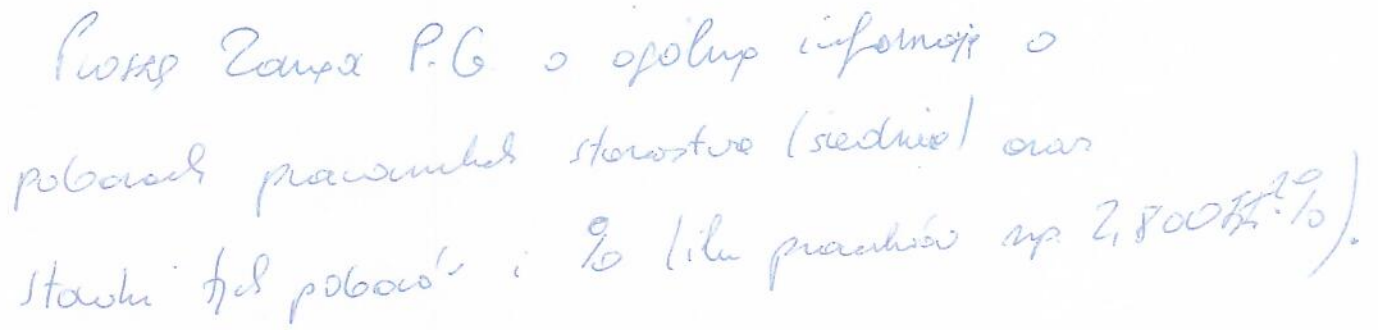 Proszę Zarząd P.G o ogólną informację o
poborach pracowników starostwa (średnie) oraz
stawki tych poborów i % (ilu pracników np. 2,800 zł ?%).